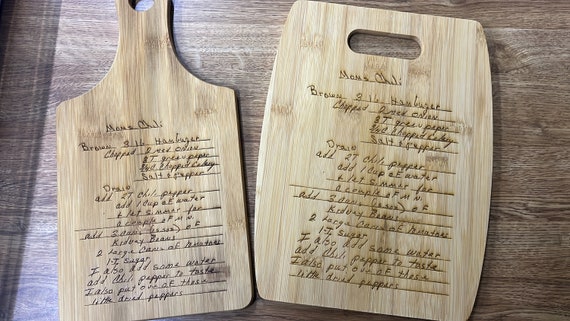 Moms Chili
Brown 2 lb. Hamburger
Chopped 2 med onion
8 T green pepper
chopped celery
Salt & pepper
Drain
add 2T Chili pepper
add 1 cup of water
& let simmer for
a couple of
add 3 cans of
Kidney Beans
2 Large Cans of tomatoes
1-T Sugar
I also add some water
add Chili pepper to taste
I also put one of these
little dried peppers
Moms Chili
Brown 2 lb. Hamburger
Chopped 2 med onion
8 T green pepper
chopped celery
Salt & pepper
Drain
add 2T Chili pepper
add 1 cup of water
& let simmer for
a couple of
add 3 cans of
Kidney Beans
2 Large Cans of tomatoes
1-T Sugar
I also add some water
add Chili pepper to taste
I also put one of these
little dried peppers